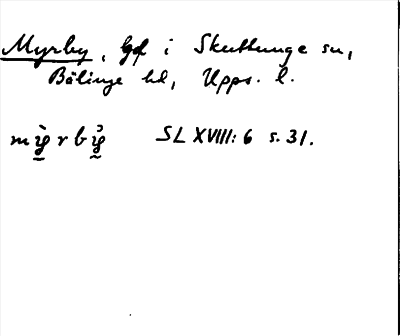 Myrby, Gd i Skuttunge sn,
Bälinge hd, Upps. l.
mỳrbỳ̉ SL XVIII: 6 s. 31.